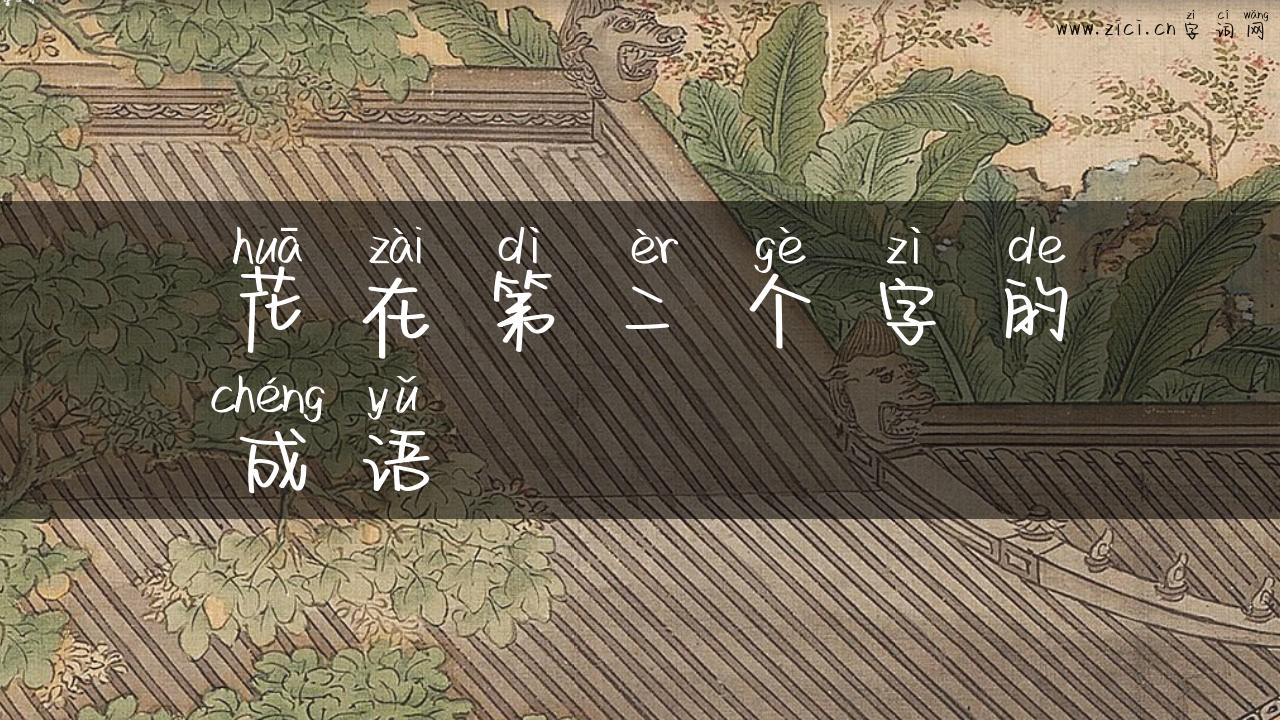 zì cí wǎng
www.zici.cn 字词网
huā zài dì èr gè zì de
花在第二个字的
chéng yǔ
成语